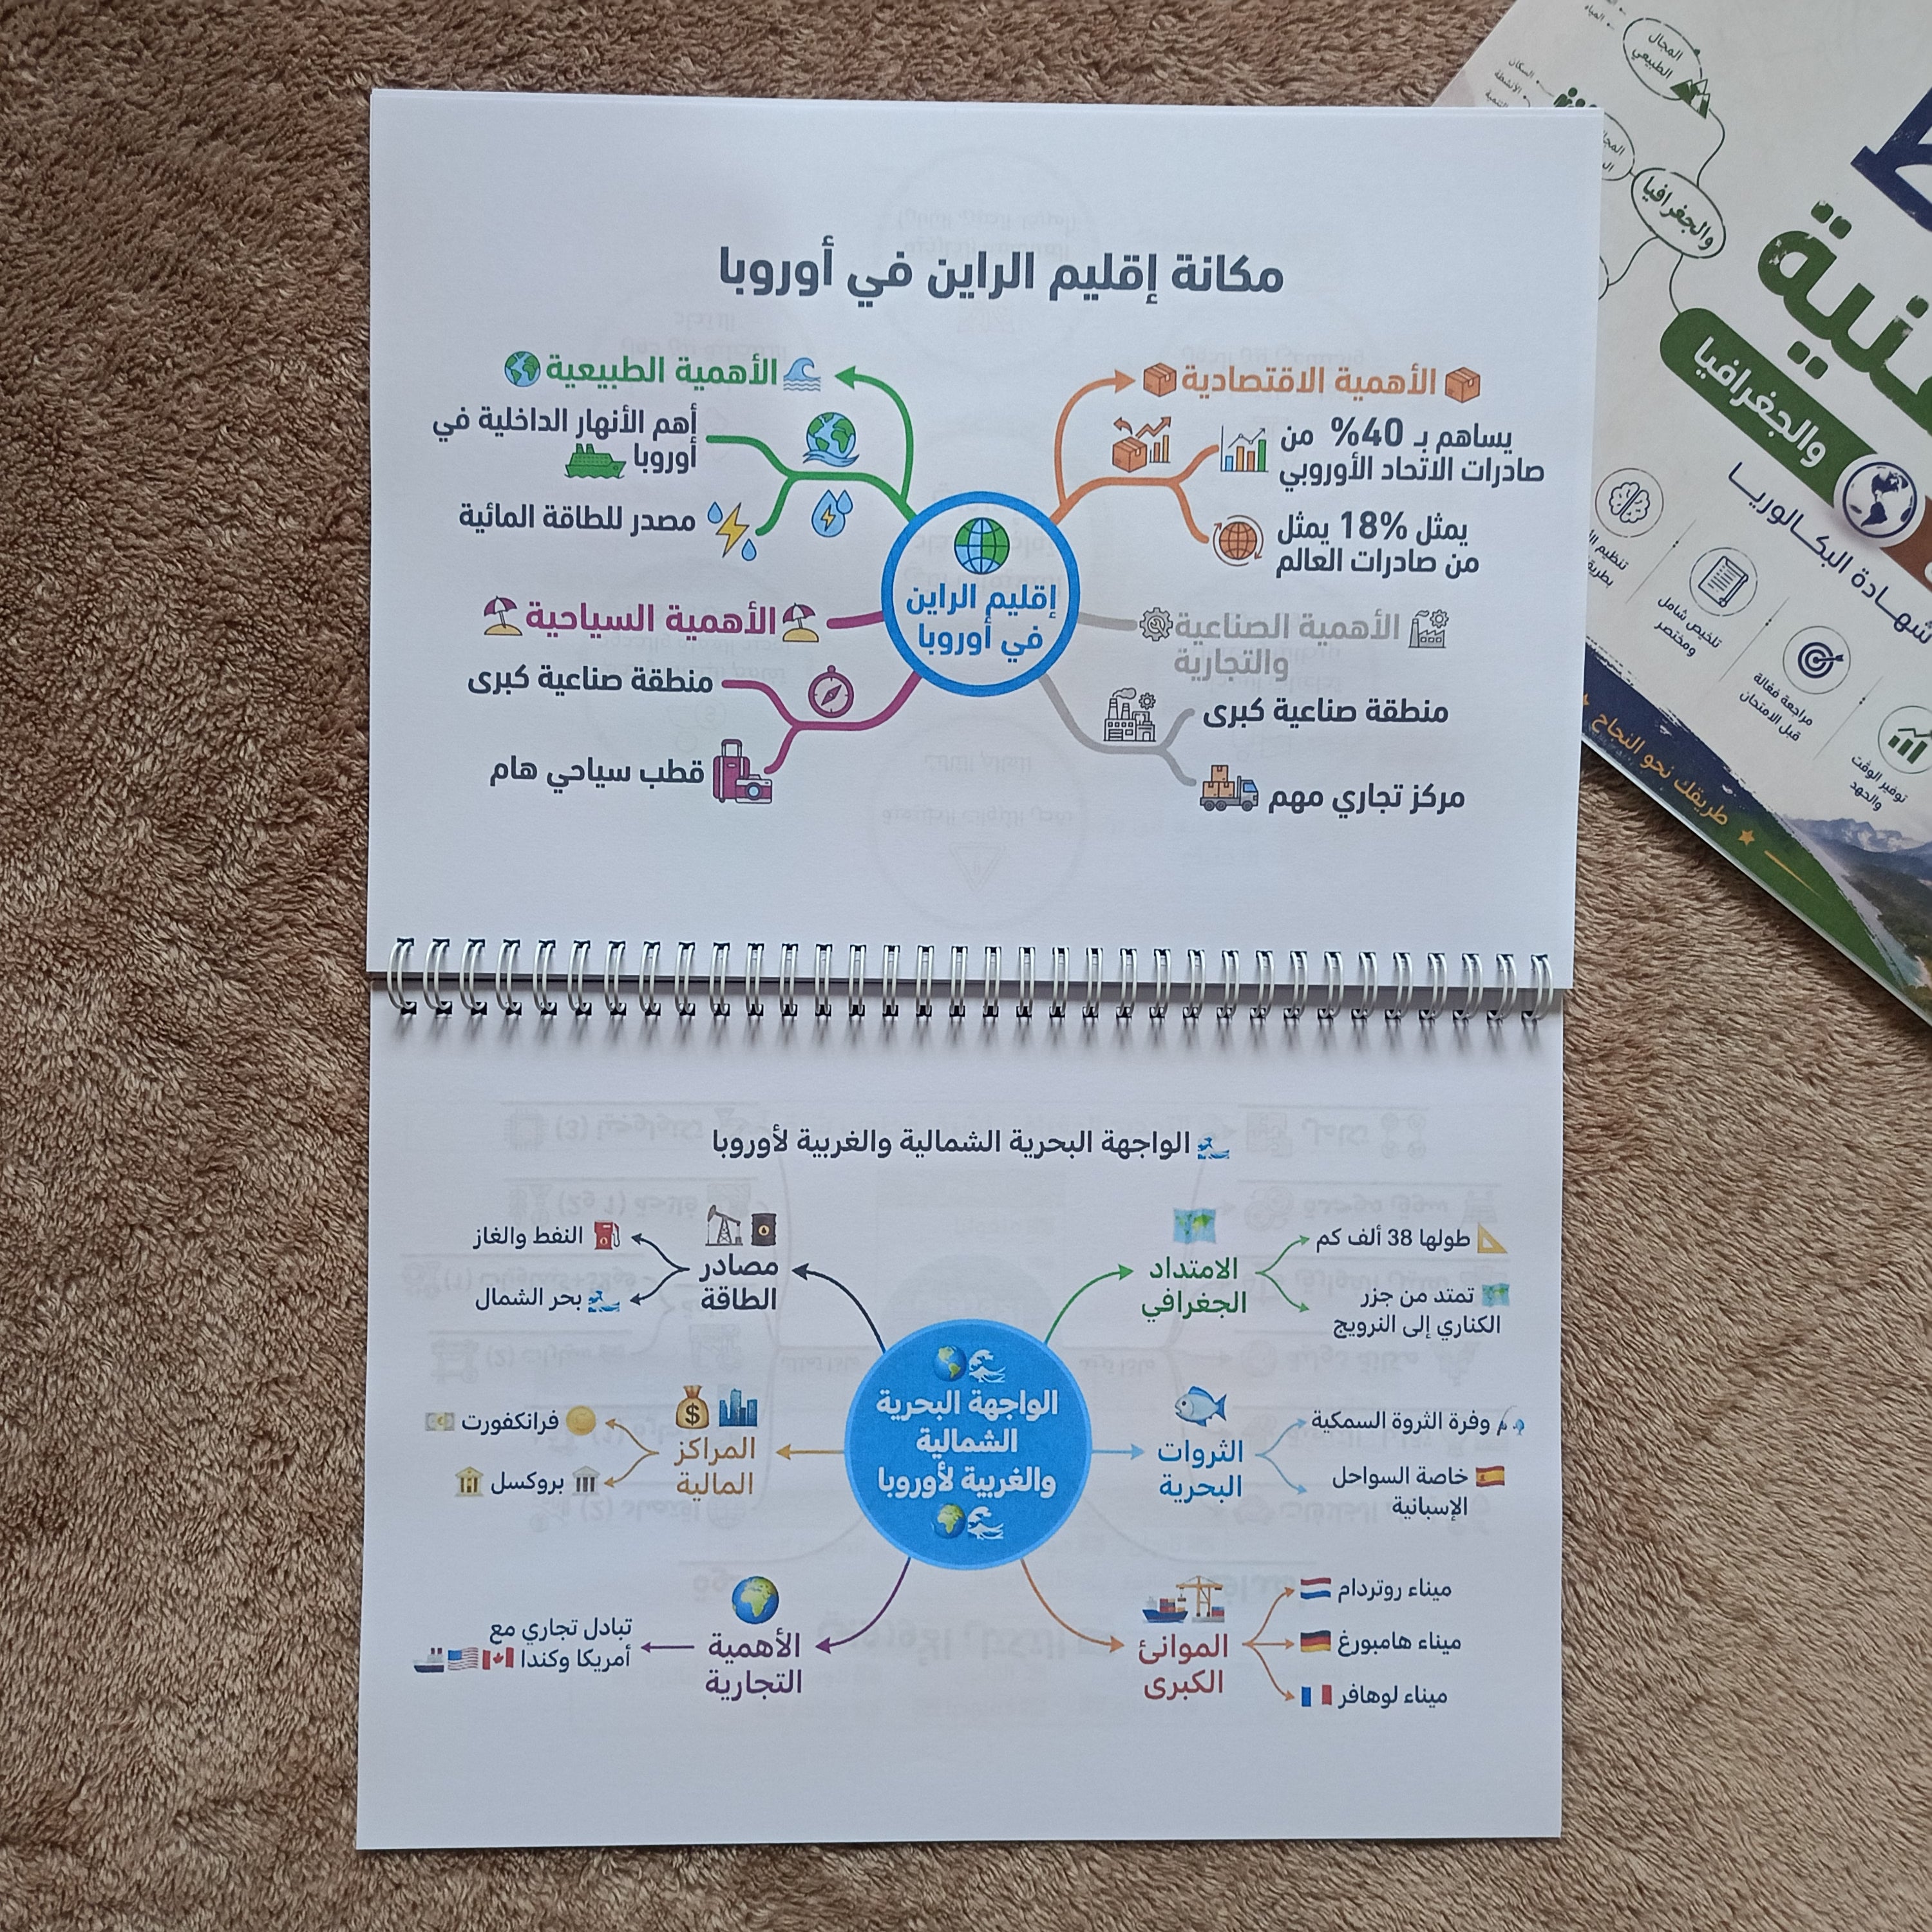 مكانة إقليم الراين في أوروبا
الأهمية الاقتصادية
يساهم بـ 40% من
صادرات الاتحاد الأوروبي
يمثل 18% يمثل
من صادرات العالم
الأهمية الصناعية
والتجارية
منطقة صناعية كبرى
مركز تجاري مهم
إقليم الراين
في أوروبا
الأهمية الطبيعية
أهم الأنهار الداخلية في
أوروبا
مصدر للطاقة المائية
الأهمية السياحية
منطقة صناعية كبرى
قطب سياحي هام
الواجهة البحرية الشمالية والغربية لأوروبا
الامتداد
الجغرافي
طولها 38 ألف كم
تمتد من جزر
الكناري إلى النرويج
الثروات
البحرية
وفرة الثروة السمكية
خاصة السواحل
الإسبانية
الموانئ
الكبرى
ميناء روتردام
ميناء هامبورغ
ميناء لوهافر
الواجهة البحرية
الشمالية
والغربية لأوروبا
مصادر
الطاقة
النفط والغاز
بحر الشمال
المراكز
المالية
فرانكفورت
بروكسل
الأهمية
التجارية
تبادل تجاري مع
أمريكا وكندا
المجال
الطبيعي
السكان
الأنشطة
والجغرافيا
والجغرافيا
شهادة البكالوريا
تلخيص شامل
ومختصر
مراجعة فعالة
قبل الامتحان
توفير الوقت
والجهد
طريقك نحو النجاح